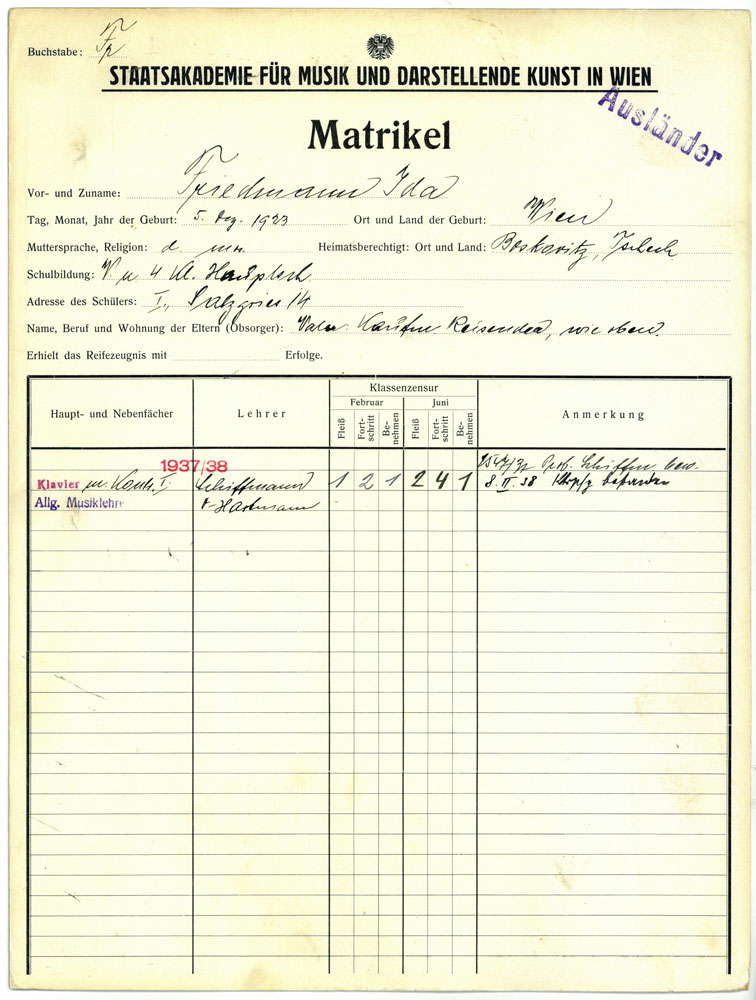 Buchstabe: Fr
STAATSAKADEMIE FÜR MUSIK UND DARSTELLENDE KUNST IN WIEN
Ausländer
Matrikel
Vor- und Zuname: Friedmann Ida
Tag, Monat, Jahr der Geburt: 5. Dez. 1923 Ort und Land der Geburt: Wien
Muttersprache, Religion: d. Heimatsberechtigt: Ort und Land: Boskovitz, Tschech
Schulbildung: V. u. 4 Kl. Hauptsch.
Adresse des Schülers: I., Salzgries 14
Name, Beruf und Wohnung der Eltern (Obsorger): Vater Kaufm. Reisender, wie oben.
Erhielt das Reifezeugnis mit Erfolge.
Haupt- und Nebenfächer Lehrer Klassenzensur Anmerkung
Februar Juni
Fleiß Fort-schritt Be-nehmen Fleiß Fort-schritt Be-nehmen
1937/38
Klavier I. Schiffmann 1 2 1 2 4 1 Prof. Schiffm.
8. II. 38
Allg. Musiklehre Hartmann